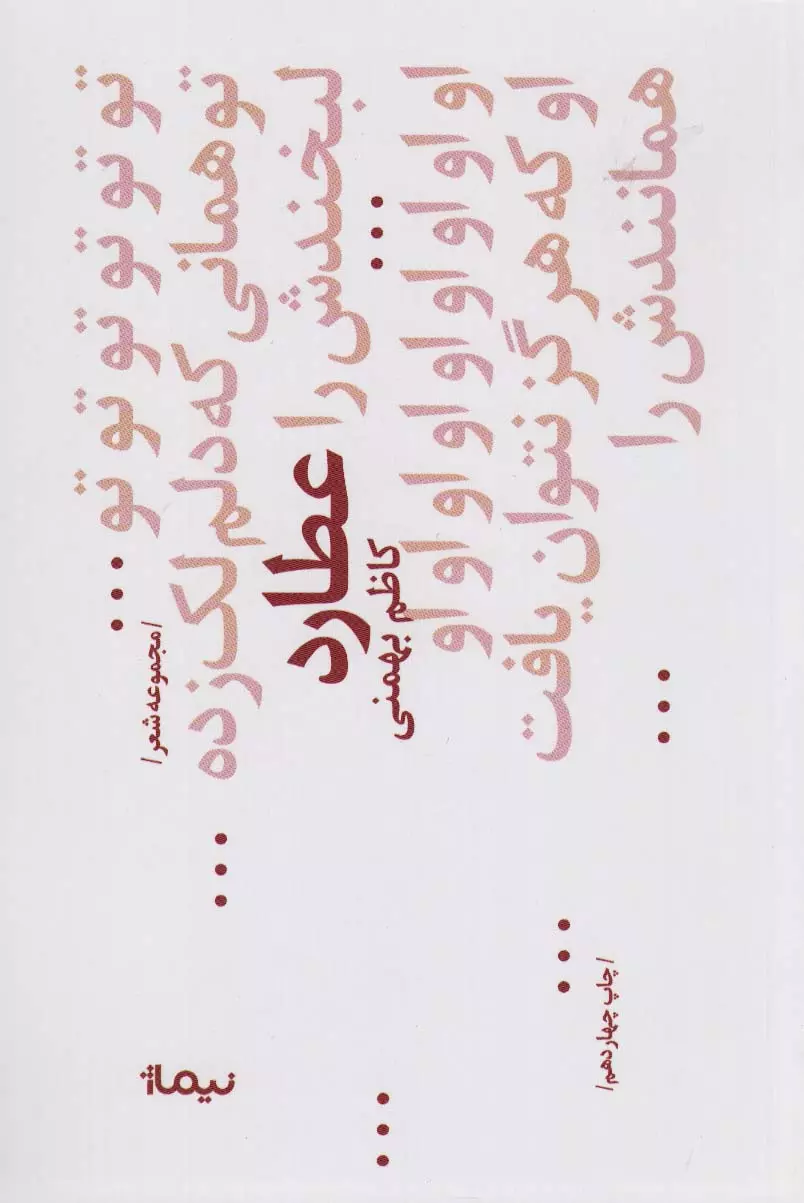 تو تو تو تو تو تو ...
/ مجموعه شعر /
تو همانی که دلم لک زده ...
لبخندش را ...
عطارد
کاظم بهمنی
او او او او او او او او
او که هر گز نتوان یافت ...
همانندش را ...
/ چاپ چهاردهم /
نیماژ